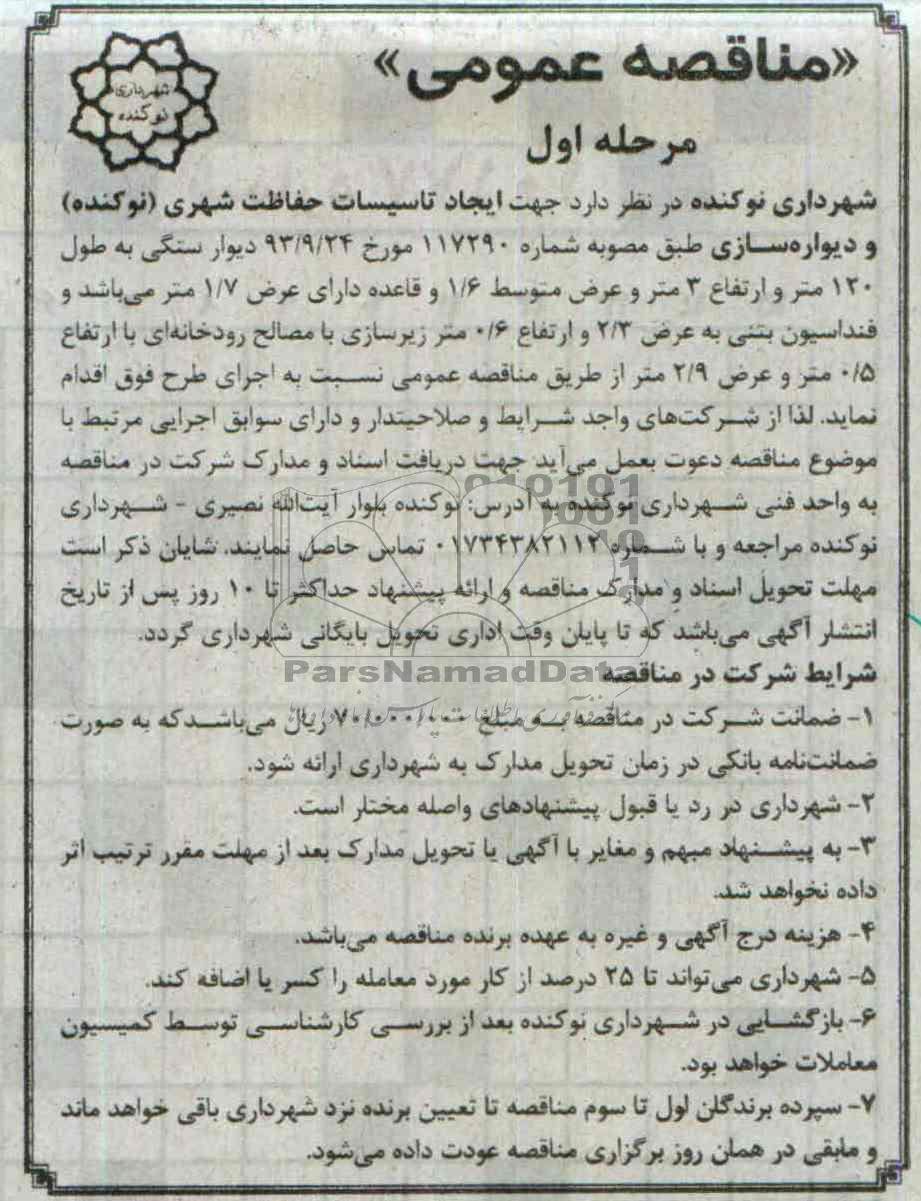 «مناقصه عمومی»
شهرداری
نوکنده
مرحله اول
شهرداری نوکنده در نظر دارد جهت ایجاد تاسیسات حفاظت شهری (نوکنده)
و دیواره‌سازی طبق مصوبه شماره ۱۱۷۲۹۰ مورخ ۹۳/۹/۲۴ دیوار سنگی به طول
۱۲۰ متر و ارتفاع ۳ متر و عرض متوسط ۱/۶ و قاعده دارای عرض ۱/۷ متر می‌باشد و
فنداسیون بتنی به عرض ۲/۳ و ارتفاع ۰/۶ متر زیرسازی با مصالح رودخانه‌ای با ارتفاع
۰/۵ متر و عرض ۲/۹ متر از طریق مناقصه عمومی نسبت به اجرای طرح فوق اقدام
نماید. لذا از شرکت‌های واجد شرایط و صلاحیتدار و دارای سوابق اجرایی مرتبط با
موضوع مناقصه دعوت بعمل می‌آید جهت دریافت اسناد و مدارک شرکت در مناقصه
به واحد فنی شهرداری نوکنده به آدرس: نوکنده بلوار آیت‌الله نصیری - شهرداری
نوکنده مراجعه و با شماره ۰۱۷۳۴۳۸۲۱۱۲ تماس حاصل نمایند. شایان ذکر است
مهلت تحویل اسناد و مدارک مناقصه و ارائه پیشنهاد حداکثر تا ۱۰ روز پس از تاریخ
انتشار آگهی می‌باشد که تا پایان وقت اداری تحویل بایگانی شهرداری گردد.
شرایط شرکت در مناقصه
ParsNamadData
۱- ضمانت شرکت در مناقصه به مبلغ ۷۰/۰۰۰/۰۰۰ ریال می‌باشد که به صورت
ضمانت‌نامه بانکی در زمان تحویل مدارک به شهرداری ارائه شود.
۲- شهرداری در رد یا قبول پیشنهادهای واصله مختار است.
۳- به پیشنهاد مبهم و مغایر با آگهی یا تحویل مدارک بعد از مهلت مقرر ترتیب اثر
داده نخواهد شد.
۴- هزینه درج آگهی و غیره به عهده برنده مناقصه می‌باشد.
۵- شهرداری می‌تواند تا ۲۵ درصد از کار مورد معامله را کسر یا اضافه کند.
۶- بازگشایی در شهرداری نوکنده بعد از بررسی کارشناسی توسط کمیسیون
معاملات خواهد بود.
۷- سپرده برندگان اول تا سوم مناقصه تا تعیین برنده نزد شهرداری باقی خواهد ماند
و مابقی در همان روز برگزاری مناقصه عودت داده می‌شود.